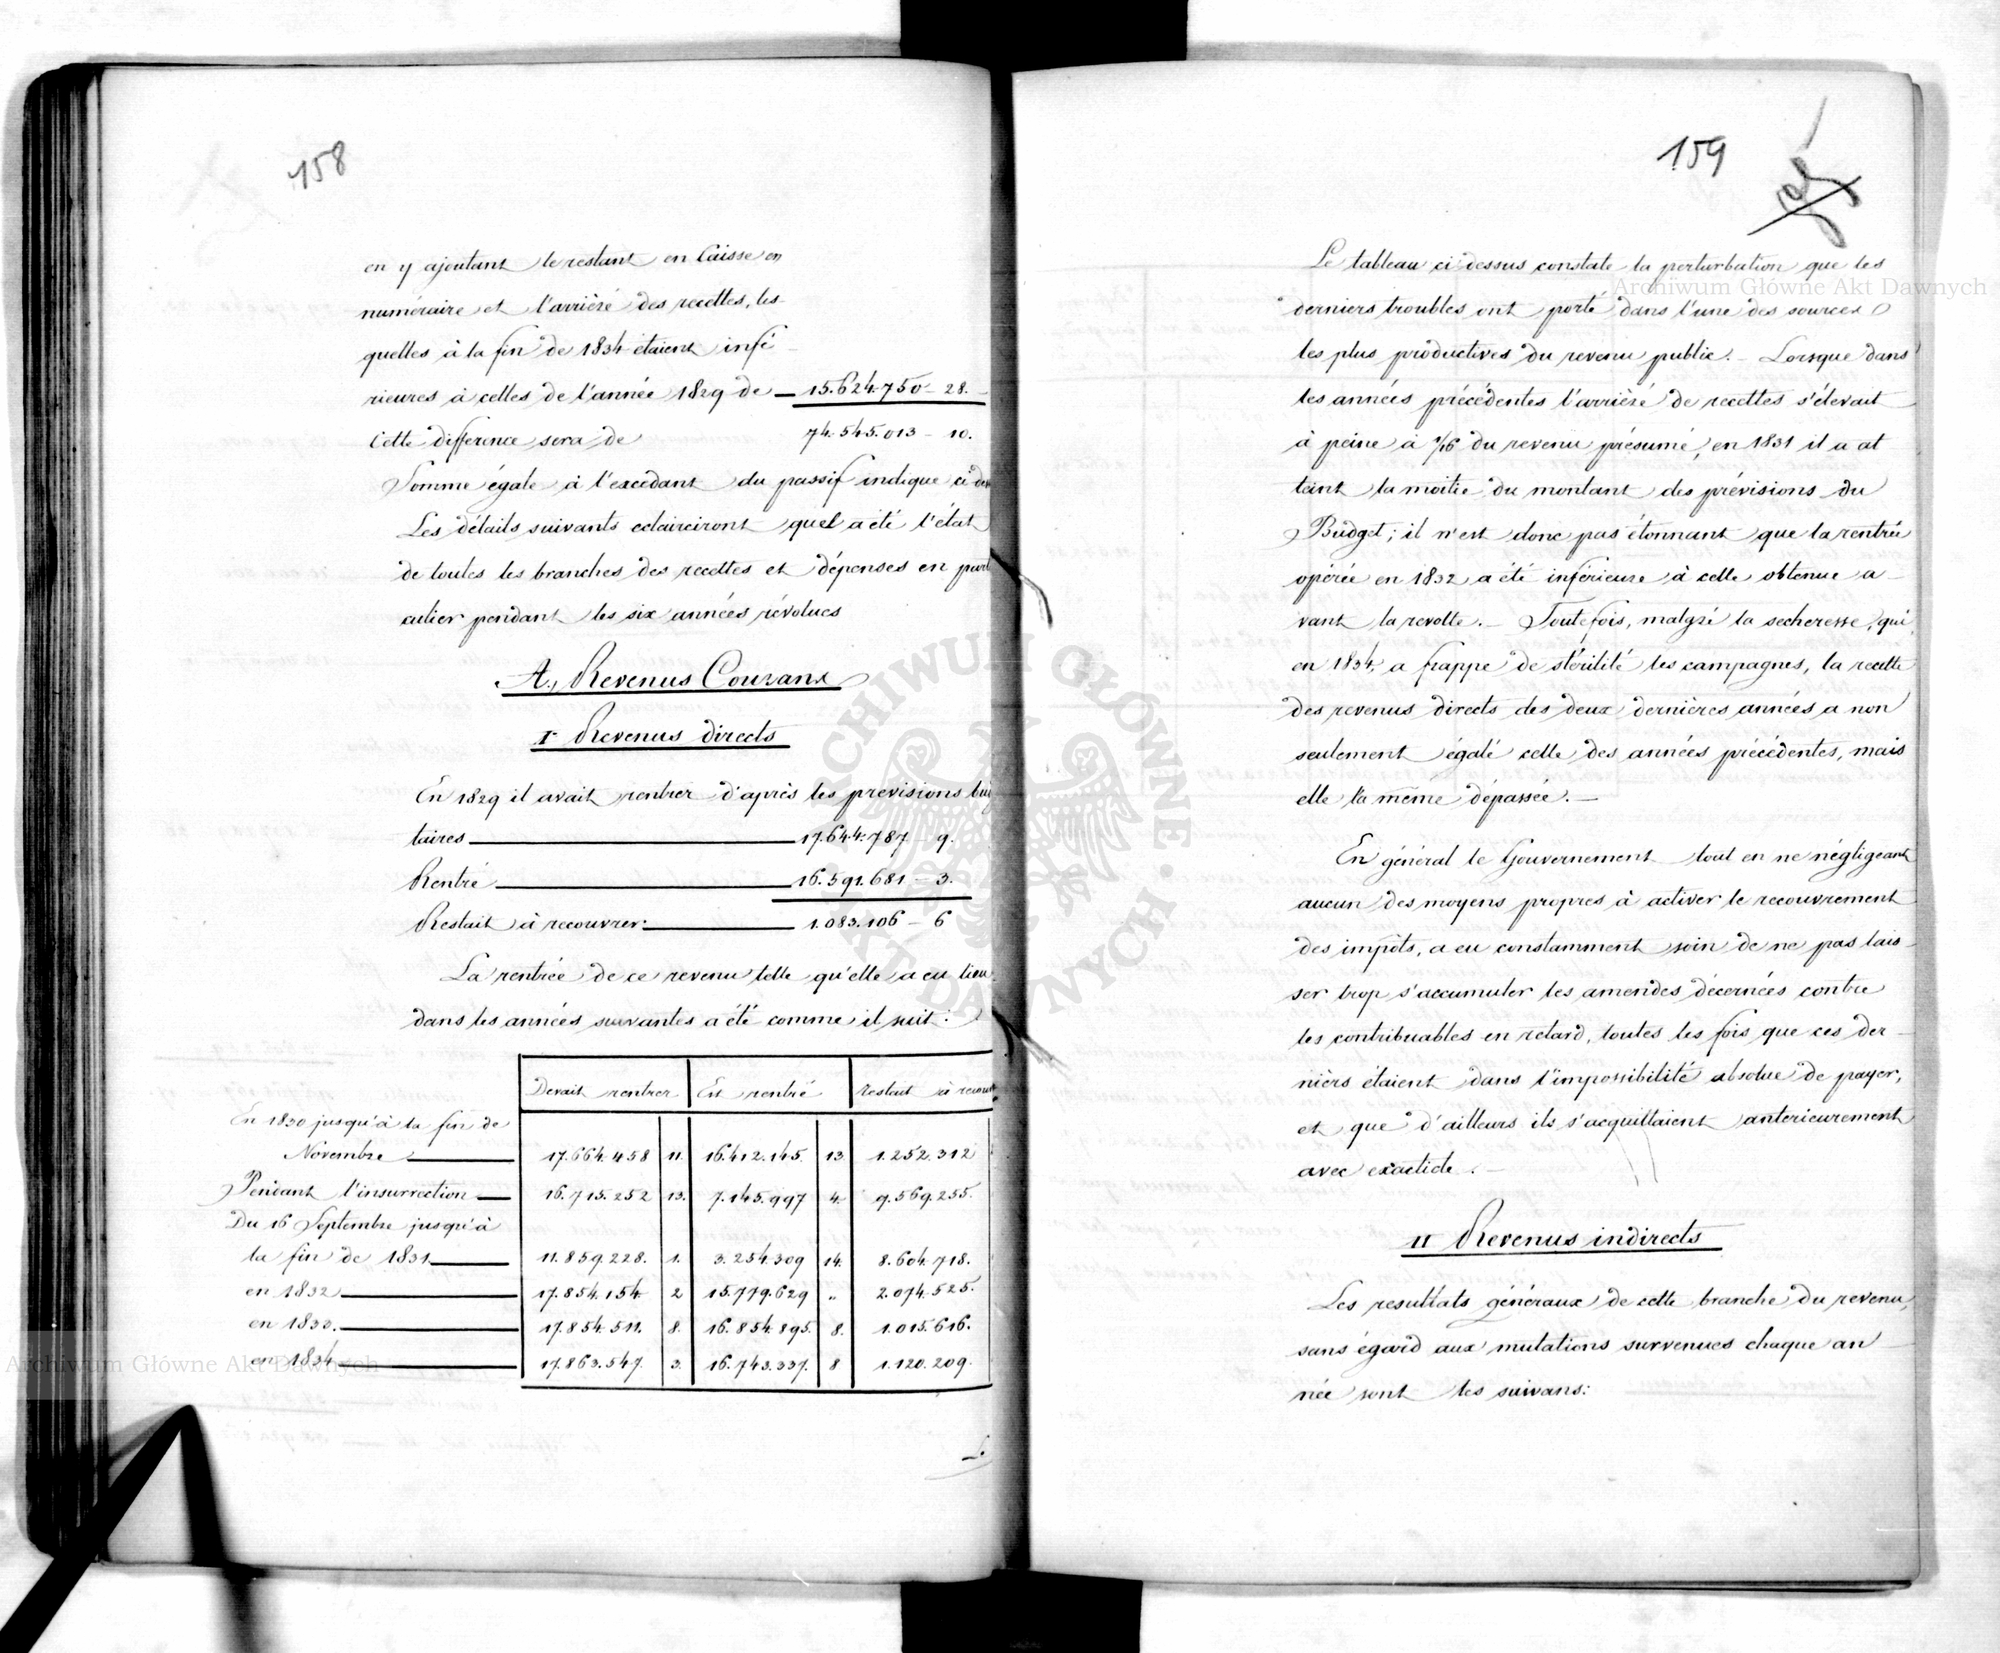 158
en y ajoutant le restant en Caisse en
numéraire et l'arriéré des recettes, les-
quelles à la fin de 1834 étaient infé-
rieures à celles de l'année 1829 de — 15.624.750 - 28.
Cette différence sera de 74.545.013 - 10.
Somme égale à l'excédant du passif indiqué ci
Les détails suivants eclairciront quel a été l'état
de toutes les branches des recettes et dépenses en
culier pendant les six années révolues
A., Revenus Courans
I Revenus directs
En 1829 il avait rentrer d'après les prévisions
taires — 17.644.787 - 9.
Rentré — 16.591.681 - 3.
Restait à recouvrer: — 1.083.106 - 6
La rentrée de ce revenu telle qu'elle a eu lieu
dans les années suivantes a été comme il suit:
Devait rentrer Est rentré Restait à
En 1830 jusqu'à la fin de
Novembre — 17.664.458 11. 16.412.145. 13 1.252.312
Pendant l'insurrection — 16.715.252 13. 7.145.997 4. 9.569.255.
Du 16 Septembre jusqu'à
la fin de 1831 — 11.859.228. 1. 3.254.309 14. 8.604.718.
en 1832 — 17.854.154 2 15.779.629 " 2.074.525.
en 1833. — 17.854.511. 8. 16.854.895. 8. 1.015.616.
en 1834 — 17.863.547. 3. 16.743.337. 8 1.120.209.
159
Le tableau ci dessus constate la perturbation que les
derniers troubles ont porté dans l'une des sources
les plus productives du revenu public. - Lorsque dans
les années précédentes l'arriéré de recettes s'élevait
à peine à 1/16 du revenu présumé, en 1831 il a at
teint la moitié du montant des prévisions du
Budget; il n'est donc pas étonnant que la rentrée
opérée en 1832 a été inférieure à celle obtenue a-
vant la revolte. - Toutefois, malgré la secheresse, qui
en 1834, a frappé de stérilité les campagnes, la recette
des revenus directs des deux dernières années a non
seulement égalé celle des années précédentes, mais
elle l'a même dépassée. —
En général le Gouvernement tout en ne négligeant
aucun des moyens propres à activer le recouvrement
des impôts, a eu constamment soin de ne pas lais-
ser trop s'accumuler les amendes décernées contre
les contribuables en retard, toutes les fois que ces der-
niers étaient dans l'impossibilité absolue de payer,
et que d'ailleurs ils s'acquittaient antérieurement
avec exactide. -
II Revenus indirects
Les resultats généraux de cette branche du revenu,
sans égard aux mutations survenues chaque an
née sont les suivans:
Archiwum Główne Akt Dawnych
Archiwum Główne Akt Dawnych
ARCHIWUM GŁÓWNE AKT DAWNYCH